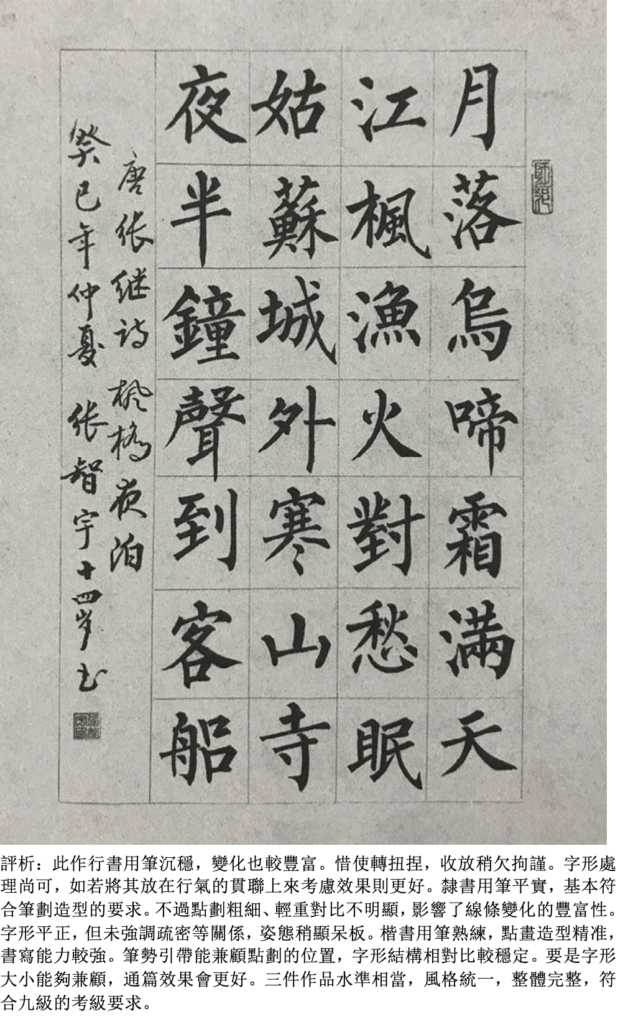 月落烏啼霜滿天
江楓漁火對愁眠
姑蘇城外寒山寺
夜半鐘聲到客船
唐张继诗枫橋夜泊
癸巳年仲夏张智宇十四岁书
評析：此作行書用筆沉穩，變化也較豐富。惜使轉扭捏，收放稍欠拘謹。字形處
理尚可，如若將其放在行氣的貫聯上來考慮效果則更好。隸書用筆平實，基本符
合筆劃造型的要求。不過點劃粗細、輕重對比不明顯，影響了線條變化的豐富性。
字形平正，但未強調疏密等關係，姿態稍顯呆板。楷書用筆熟練，點畫造型精准，
書寫能力較強。筆勢引帶能兼顧點劃的位置，字形結構相對比較穩定。要是字形
大小能夠兼顧，通篇效果會更好。三件作品水準相當，風格統一，整體完整，符
合九級的考級要求。